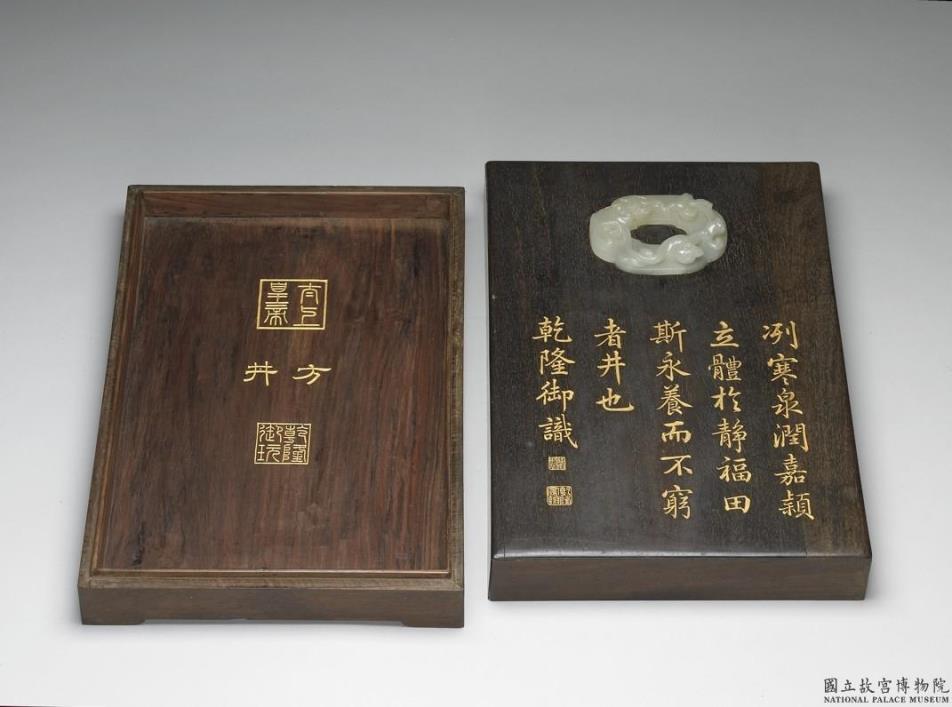 冽寒泉潤嘉穎
立體於静福田
斯永養而不窮
者井也
乾隆御識
太上皇帝
方井
乾隆御玩
國立故宮博物院
NATIONAL PALACE MUSEUM